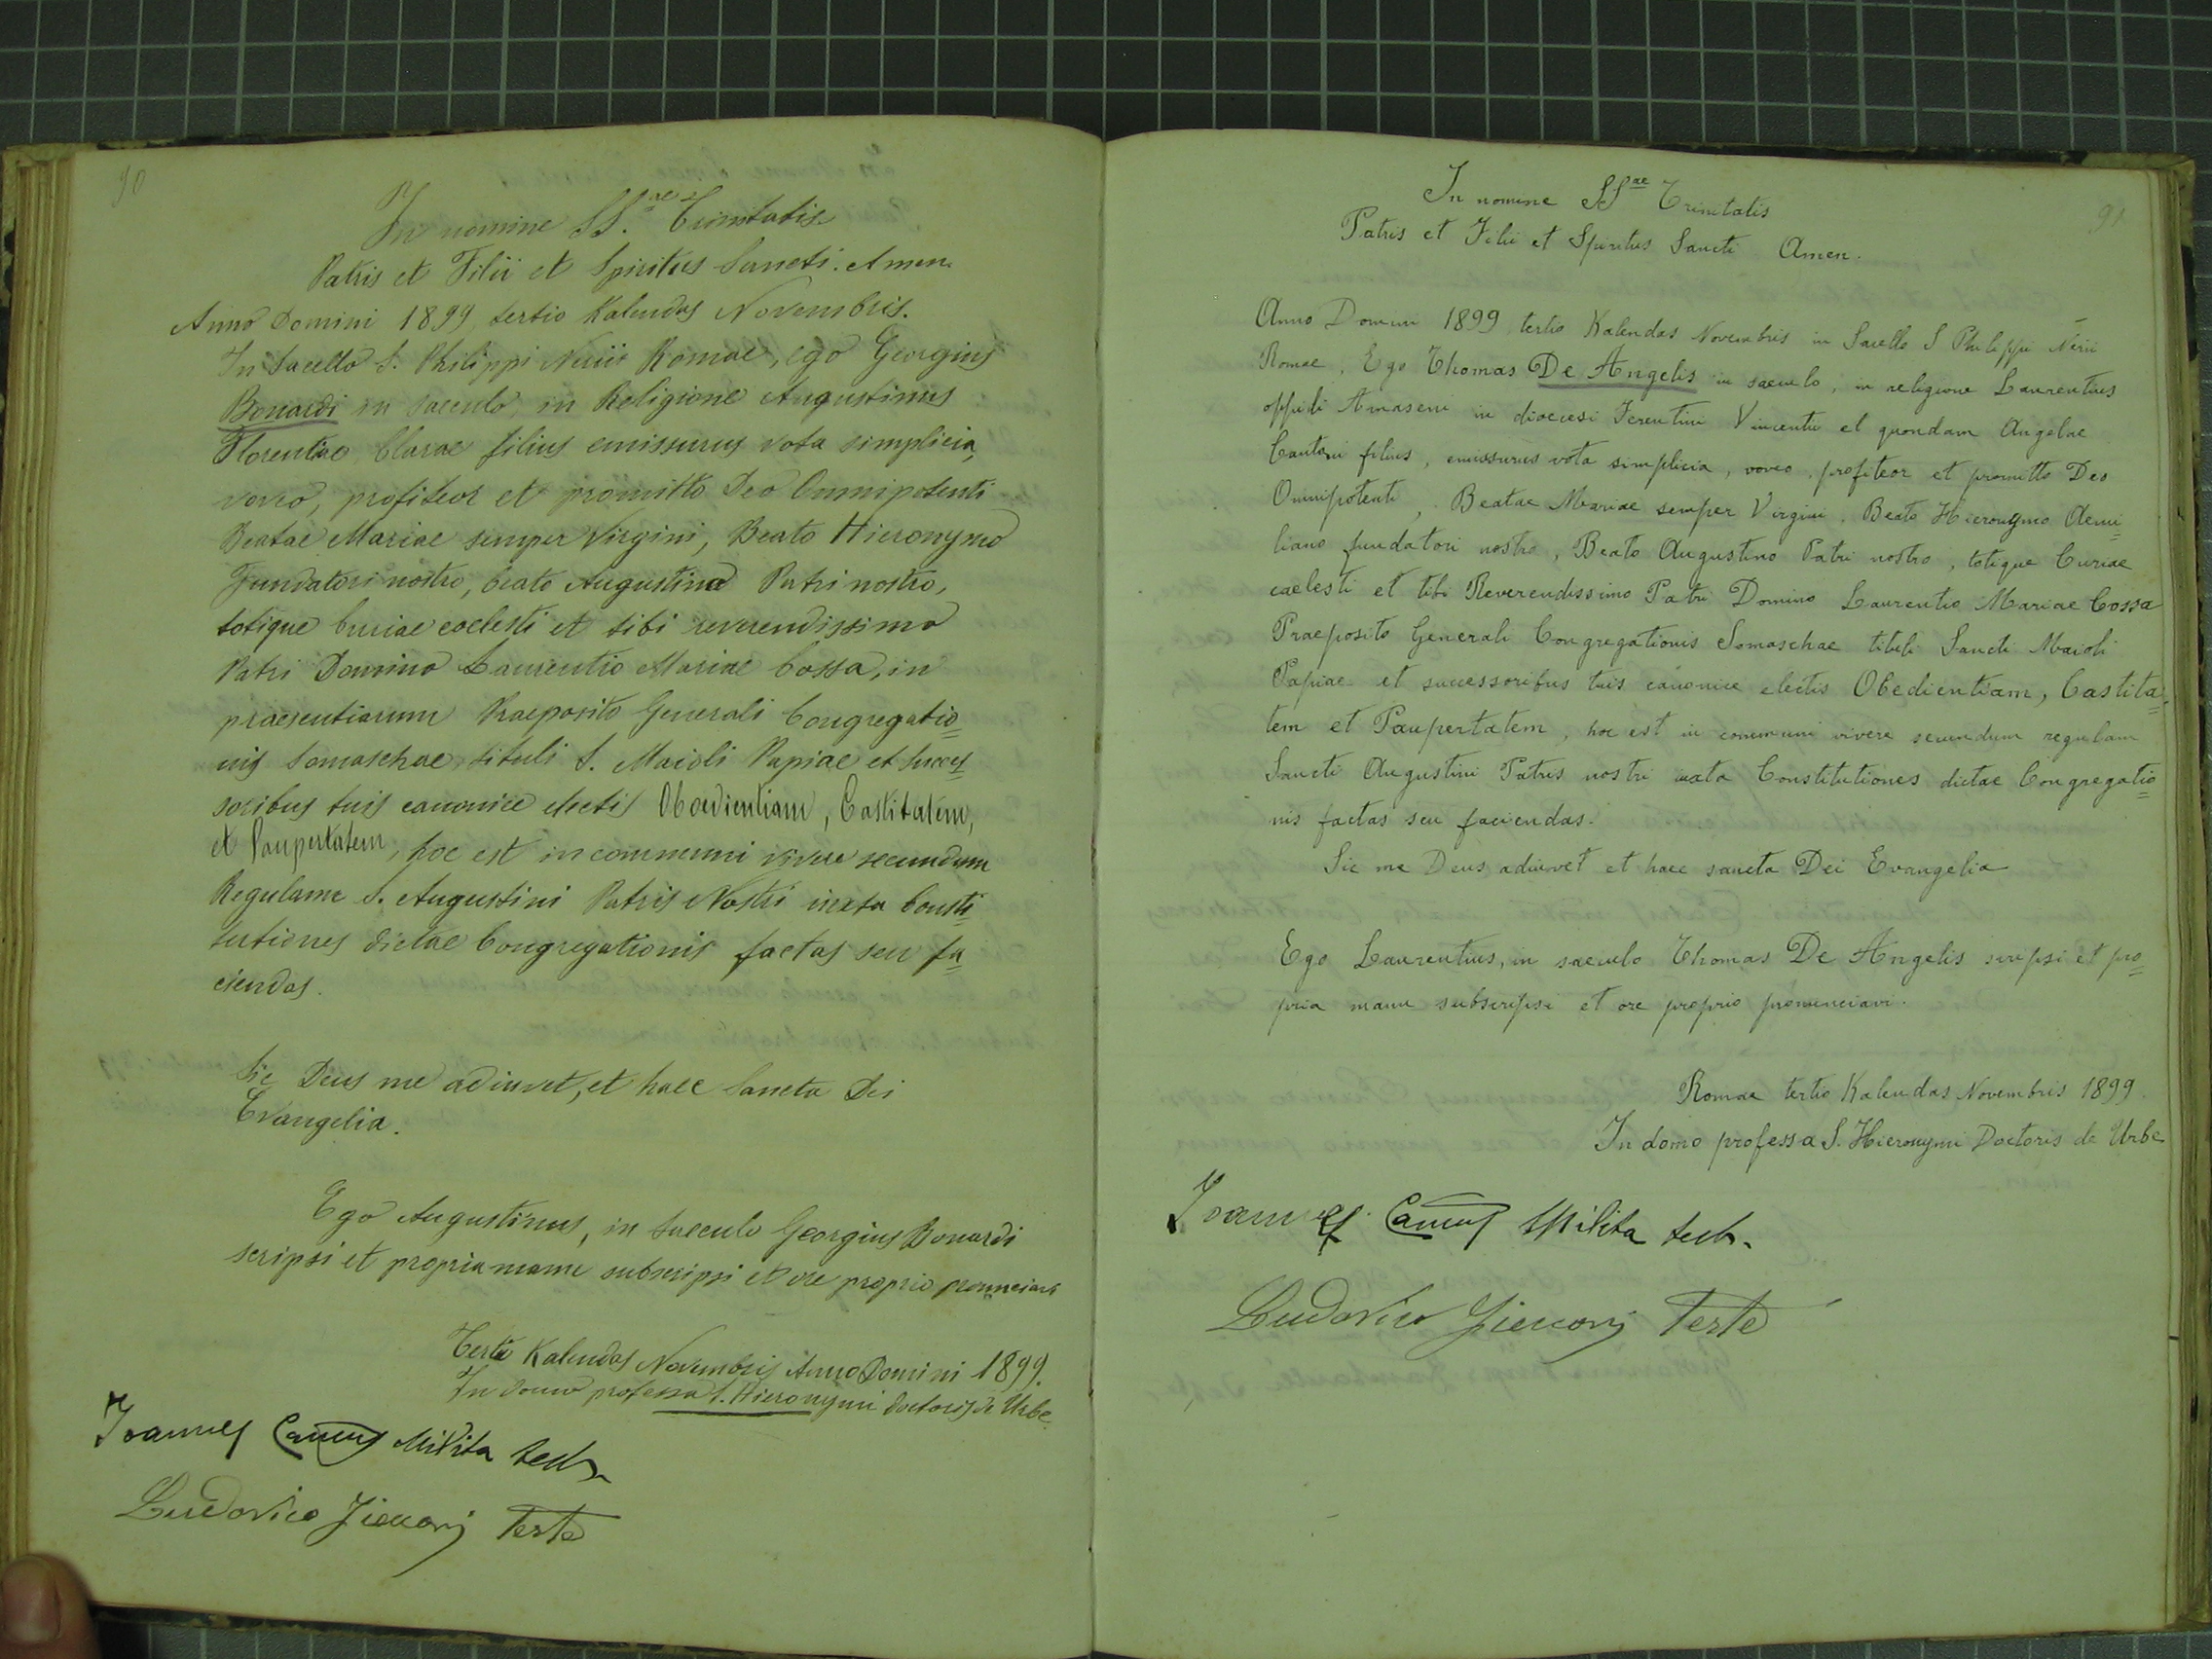 90
In nomine SS.ae Trinitatis
Patris et Filii et Spiritus Sancti. Amen.
Anno Domini 1899 tertio Kalendas Novembris.
In Sacello S. Philippi Nerii Romae, ego Georgius
Bonardi in saeculo, in Religione Augustinus
Florentiae Clarae filius emissurus vota simplicia,
voveo, profiteor et promitto Deo Omnipotenti
Beatae Mariae semper Virgini, Beato Hieronymo
Fundatori nostro, beato Augustino Patri nostro,
totique Curiae coelesti et tibi reverendissimo
Patri Domino Laurentio Mariae Cossa, in
praesentiarum Praeposito Generali Congregatio=
nis Somaschae, tituli S. Maioli Papiae et Succes=
soribus tuis canonice electis Obedientiam, Castitatem,
et Paupertatem, hoc est in communi vivere secundum
Regulam S. Augustini Patris Nostri iuxta Consti=
tutiones dictae Congregationis factas seu fa=
ciendas.
Sic Deus me adiuvet, et haec Sancta Dei
Evangelia.
Ego Augustinus, in Saeculo Georgius Bonardi
scripsi et propria manu subscripsi et ore proprio pronunciavi
Tertio Kalendas Novembris Anno Domini 1899.
In domo professa S. Hieronymi doctoris de Urbe
Ioannes Militta test.
Ludovico Teste
91
In nomine SSae Trinitatis
Patris et Filii et Spiritus Sancti Amen.
Anno Domini 1899 tertio Kalendas Novembris in Sacello S Philippi Nerii
Romae, Ego Thomas De Angelis in saeculo, in religione Laurentius
oppidi Amaseni in dioecesi Ferentini Vincentii et quondam Angelae
Cantoni filius, emissurus vota simplicia, voveo, profiteor et promitto Deo
Omnipotenti, Beatae Mariae semper Virgini, Beato Hieronymo Aemi=
liano fundatori nostro, Beato Augustino Patri nostro, totique Curiae
caelesti et tibi Reverendissimo Patri Domino Laurentio Mariae Cossa
Praeposito Generali Congregationis Somaschae tituli Sancti Maioli
Papiae et successoribus tuis canonice electis Obedientiam, Castita=
tem et Paupertatem, hoc est in communi vivere secundum regulam
Sancti Augustini Patris nostri iuxta Constitutiones dictae Congregatio=
nis factas seu faciendas.
Sic me Deus adiuvet et haec sancta Dei Evangelia
Ego Laurentius, in saeculo Thomas De Angelis scripsi et pro=
pria manu subscripsi et ore proprio pronunciavi.
Romae tertio Kalendas Novembris 1899.
In domo professa S. Hieronymi Doctoris de Urbe
Ioannes Militta test.
Ludovico Teste